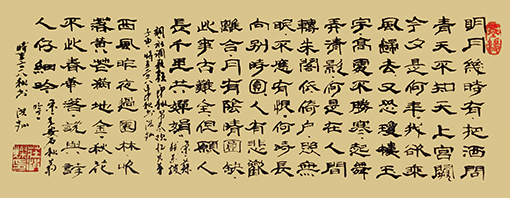 明月幾時有把酒問
青天不知天上宮闕
今夕是何年我欲乘
風歸去又恐瓊樓玉
宇高處不勝寒起舞
弄清影何是在人間
轉朱閣低綺戶照無
眠不應有恨何時長
向別時圓人有悲歡
離合月有陰晴圓缺
此事古難全但願人
長千里共嬋娟
西風昨夜過園林吹
落黃花滿地金秋花
不比春華落說與詩
人仔細吟